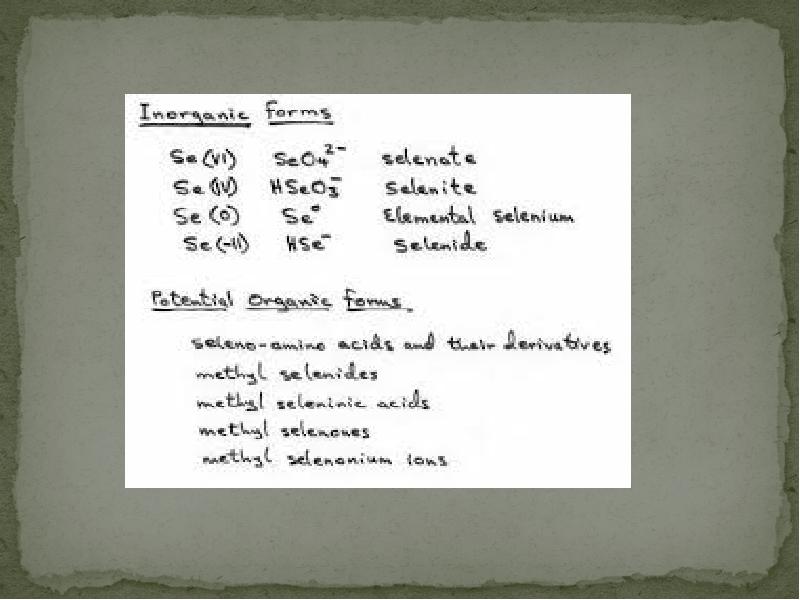 Inorganic forms
Se (VI) SeO4²⁻ selenate
Se (IV) HSeO3⁻ selenite
Se (0) Se° Elemental selenium
Se (-II) HSe⁻ selenide
Potential Organic forms.
seleno-amino acids and their derivatives
methyl selenides
methyl seleninic acids
methyl selenones
methyl selenonium ions